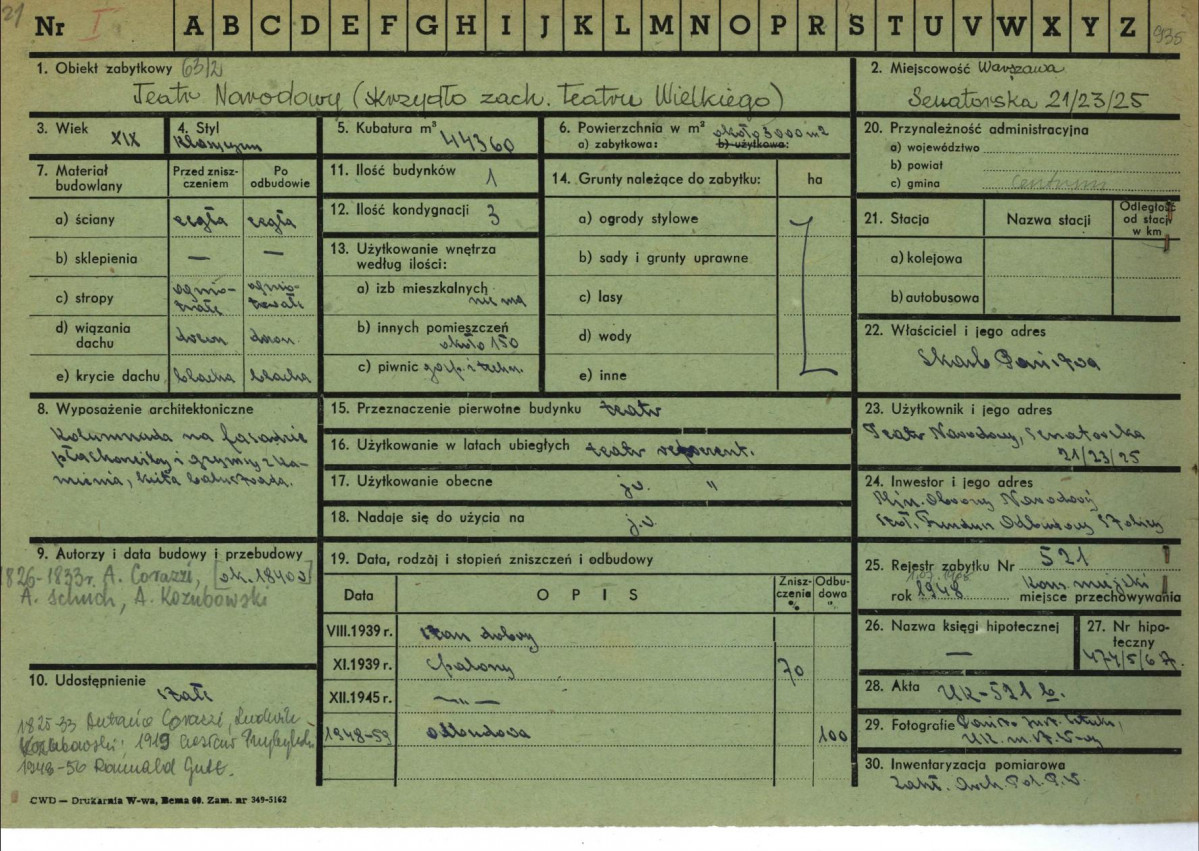 21
Nr I A B C D E F G H I J K L M N O P R S T U V W X Y Z 935
1. Obiekt zabytkowy 63/2
Teatr Narodowy (skrzydło zach. Teatru Wielkiego)
2. Miejscowość Warszawa
Senatorska 21/23/25
3. Wiek
XIX
4. Styl
klasycyzm
5. Kubatura m³
44360
6. Powierzchnia w m² około 3000 m2
a) zabytkowa: b) użytkowa:
20. Przynależność administracyjna
a) województwo
b) powiat
c) gmina Centrum
7. Materiał budowlany
Przed zniszczeniem
Po odbudowie
a) ściany cegła cegła
b) sklepienia — —
c) stropy ogniotrwałe ogniotrwałe
d) wiązania dachu drewn. drewn.
e) krycie dachu blacha blacha
11. Ilość budynków 1
12. Ilość kondygnacji 3
13. Użytkowanie wnętrza
według ilości:
a) izb mieszkalnych
nie ma
b) innych pomieszczeń
około 150
c) piwnic gosp. i techn.
14. Grunty należące do zabytku: ha
a) ogrody stylowe
b) sady i grunty uprawne
c) lasy
d) wody
e) inne
21. Stacja
Nazwa stacji
Odległość
od stacji
w km
a) kolejowa
b) autobusowa
22. Właściciel i jego adres
Skarb Państwa
8. Wyposażenie architektoniczne
Kolumnada na fasadzie
płaskorzeźby i gzymsy z ka-
mienia, kuta balustrada.
15. Przeznaczenie pierwotne budynku teatr
16. Użytkowanie w latach ubiegłych teatr reprezent.
17. Użytkowanie obecne j.w. "
18. Nadaje się do użycia na j.w.
23. Użytkownik i jego adres
Teatr Narodowy, Senatorska
21/23/25
24. Inwestor i jego adres
Min. Obrony Narodowej
Stoł. Fundusz Odbudowy Stolicy
9. Autorzy i data budowy i przebudowy
1826-1833r. A. Corazzi, [ok. 1840 r]
A. Schuch, A. Kozubowski
19. Data, rodzaj i stopień zniszczeń i odbudowy
Data O P I S Zniszczenie % Odbudowa "
VIII.1939 r. stan dobry
XI.1939 r. spalony 70
XII.1945 r. — " —
1948-59 odbudowa 100
25. Rejestr zabytku Nr 521
rok 1948 Kons. miejski
miejsce przechowywania
26. Nazwa księgi hipotecznej
—
27. Nr hipoteczny
474/5/6 A.
28. Akta UK-521 b.
29. Fotografie Państw. Inst. Sztuki,
UK. m. St. W-wy
30. Inwentaryzacja pomiarowa
Zakł. Arch. Pol. P.W.
10. Udostępnienie
stałe
1825-33 Antonio Corazzi, Ludwik
Kozubowski; 1919 Czesław Przybylski
1948-56 Romuald Gutt.
CWD — Drukarnia W-wa, Bema 60. Zam. nr 349-5162